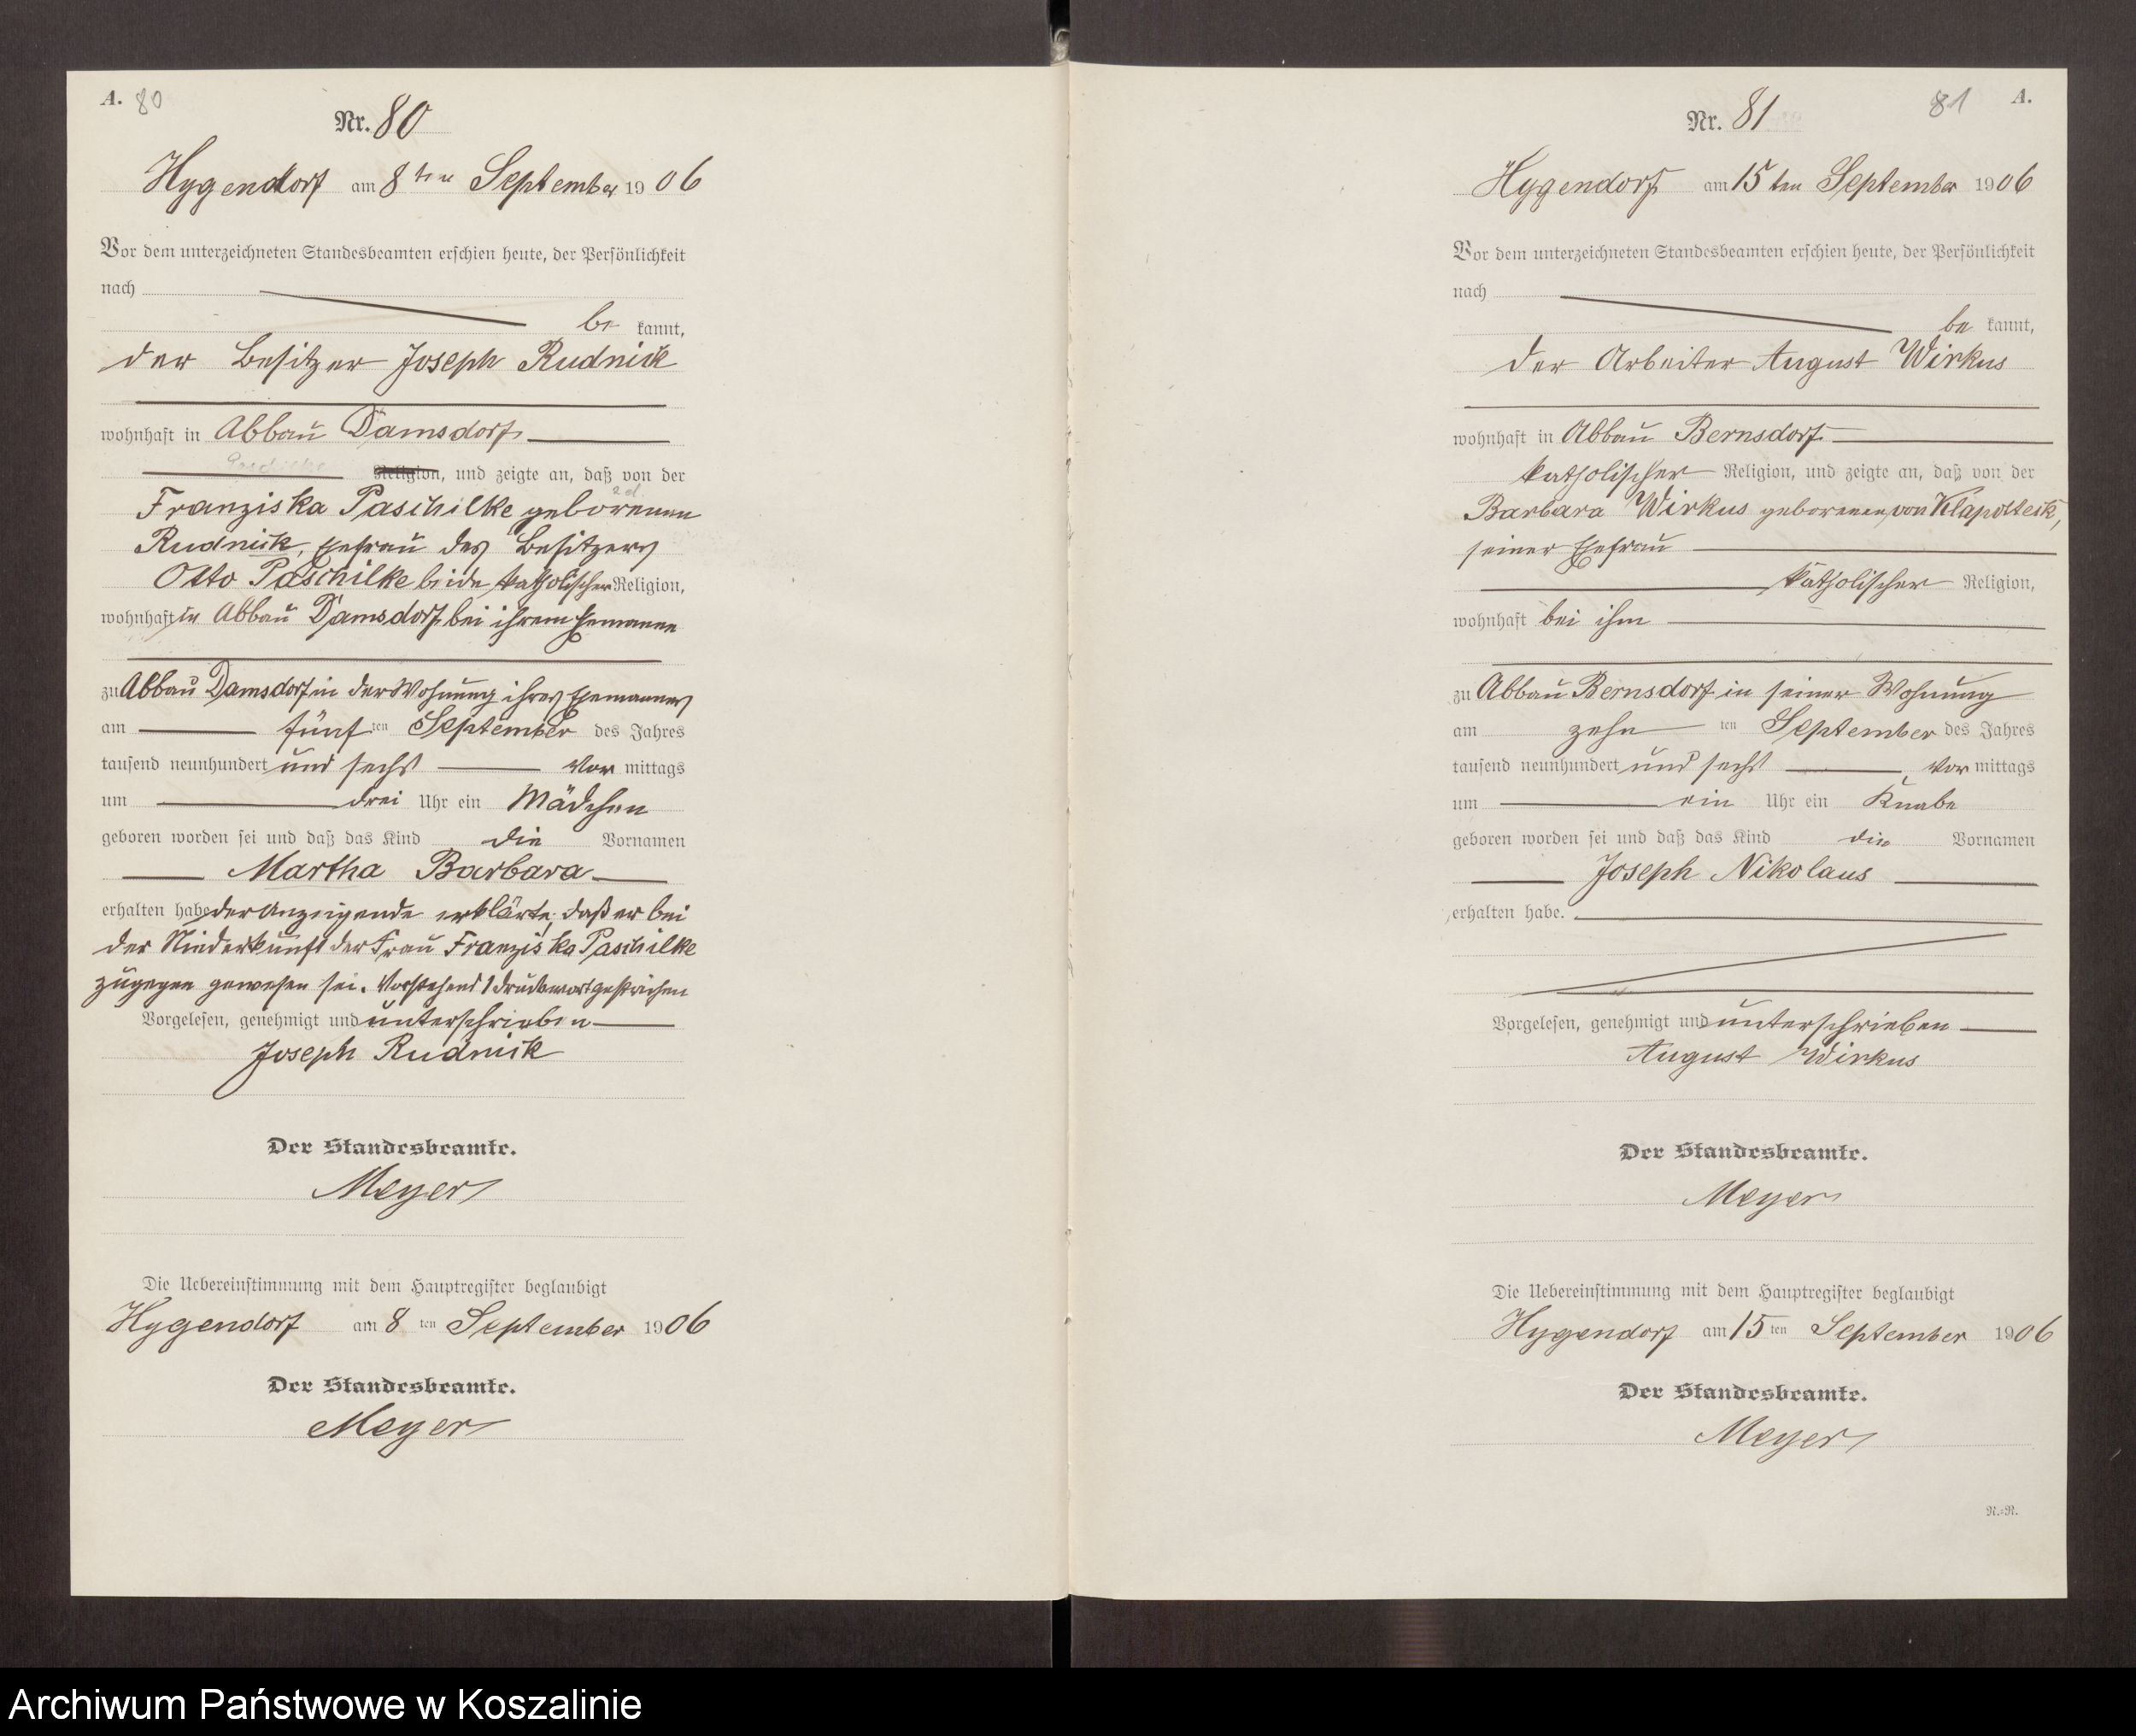 A. 80
Nr. 80
Hygendorf am 8ten September 1906
Vor dem unterzeichneten Standesbeamten erschien heute, der Persönlichkeit
nach
be kannt,
der Besitzer Joseph Rudnick
wohnhaft in Abbau Damsdorf
Paschilke
Religion, und zeigte an, daß von der
Franziska Paschilke geborenen
Rudnick, Ehefrau des Besitzers
Otto Paschilke beide katholischer Religion,
wohnhaft in Abbau Damsdorf bei ihrem Ehemanne
zu Abbau Damsdorf in der Wohnung ihres Ehemannes
am fünf ten September des Jahres
tausend neunhundert und sechs Vor mittags
um drei Uhr ein Mädchen
geboren worden sei und daß das Kind die Vornamen
Martha Barbara
erhalten habe der Anzeigende erklärte, daß er bei
der Niederkunft der Frau Franziska Paschilke
zugegen gewesen sei. Vorstehend 1 Druckwort gestrichen
Vorgelesen, genehmigt und unterschrieben
Joseph Rudnick
Der Standesbeamte.
Meyer
Die Uebereinstimmung mit dem Hauptregister beglaubigt
Hygendorf am 8 ten September 1906
Der Standesbeamte.
Meyer
81 A.
Nr. 81
Hygendorf am 15ten September 1906
Vor dem unterzeichneten Standesbeamten erschien heute, der Persönlichkeit
nach
be kannt,
der Arbeiter August Wirkus
wohnhaft in Abbau Bernsdorf
katholischer Religion, und zeigte an, daß von der
Barbara Wirkus geborenen von Klapotteck,
seiner Ehefrau
katholischer Religion,
wohnhaft bei ihm
zu Abbau Bernsdorf in seiner Wohnung
am zehn ten September des Jahres
tausend neunhundert und sechs Vor mittags
um ein Uhr ein Knabe
geboren worden sei und daß das Kind die Vornamen
Joseph Nikolaus
erhalten habe.
Vorgelesen, genehmigt und unterschrieben
August Wirkus
Der Standesbeamte.
Meyer
Die Uebereinstimmung mit dem Hauptregister beglaubigt
Hygendorf am 15 ten September 1906
Der Standesbeamte.
Meyer
R.-R.
Archiwum Państwowe w Koszalinie